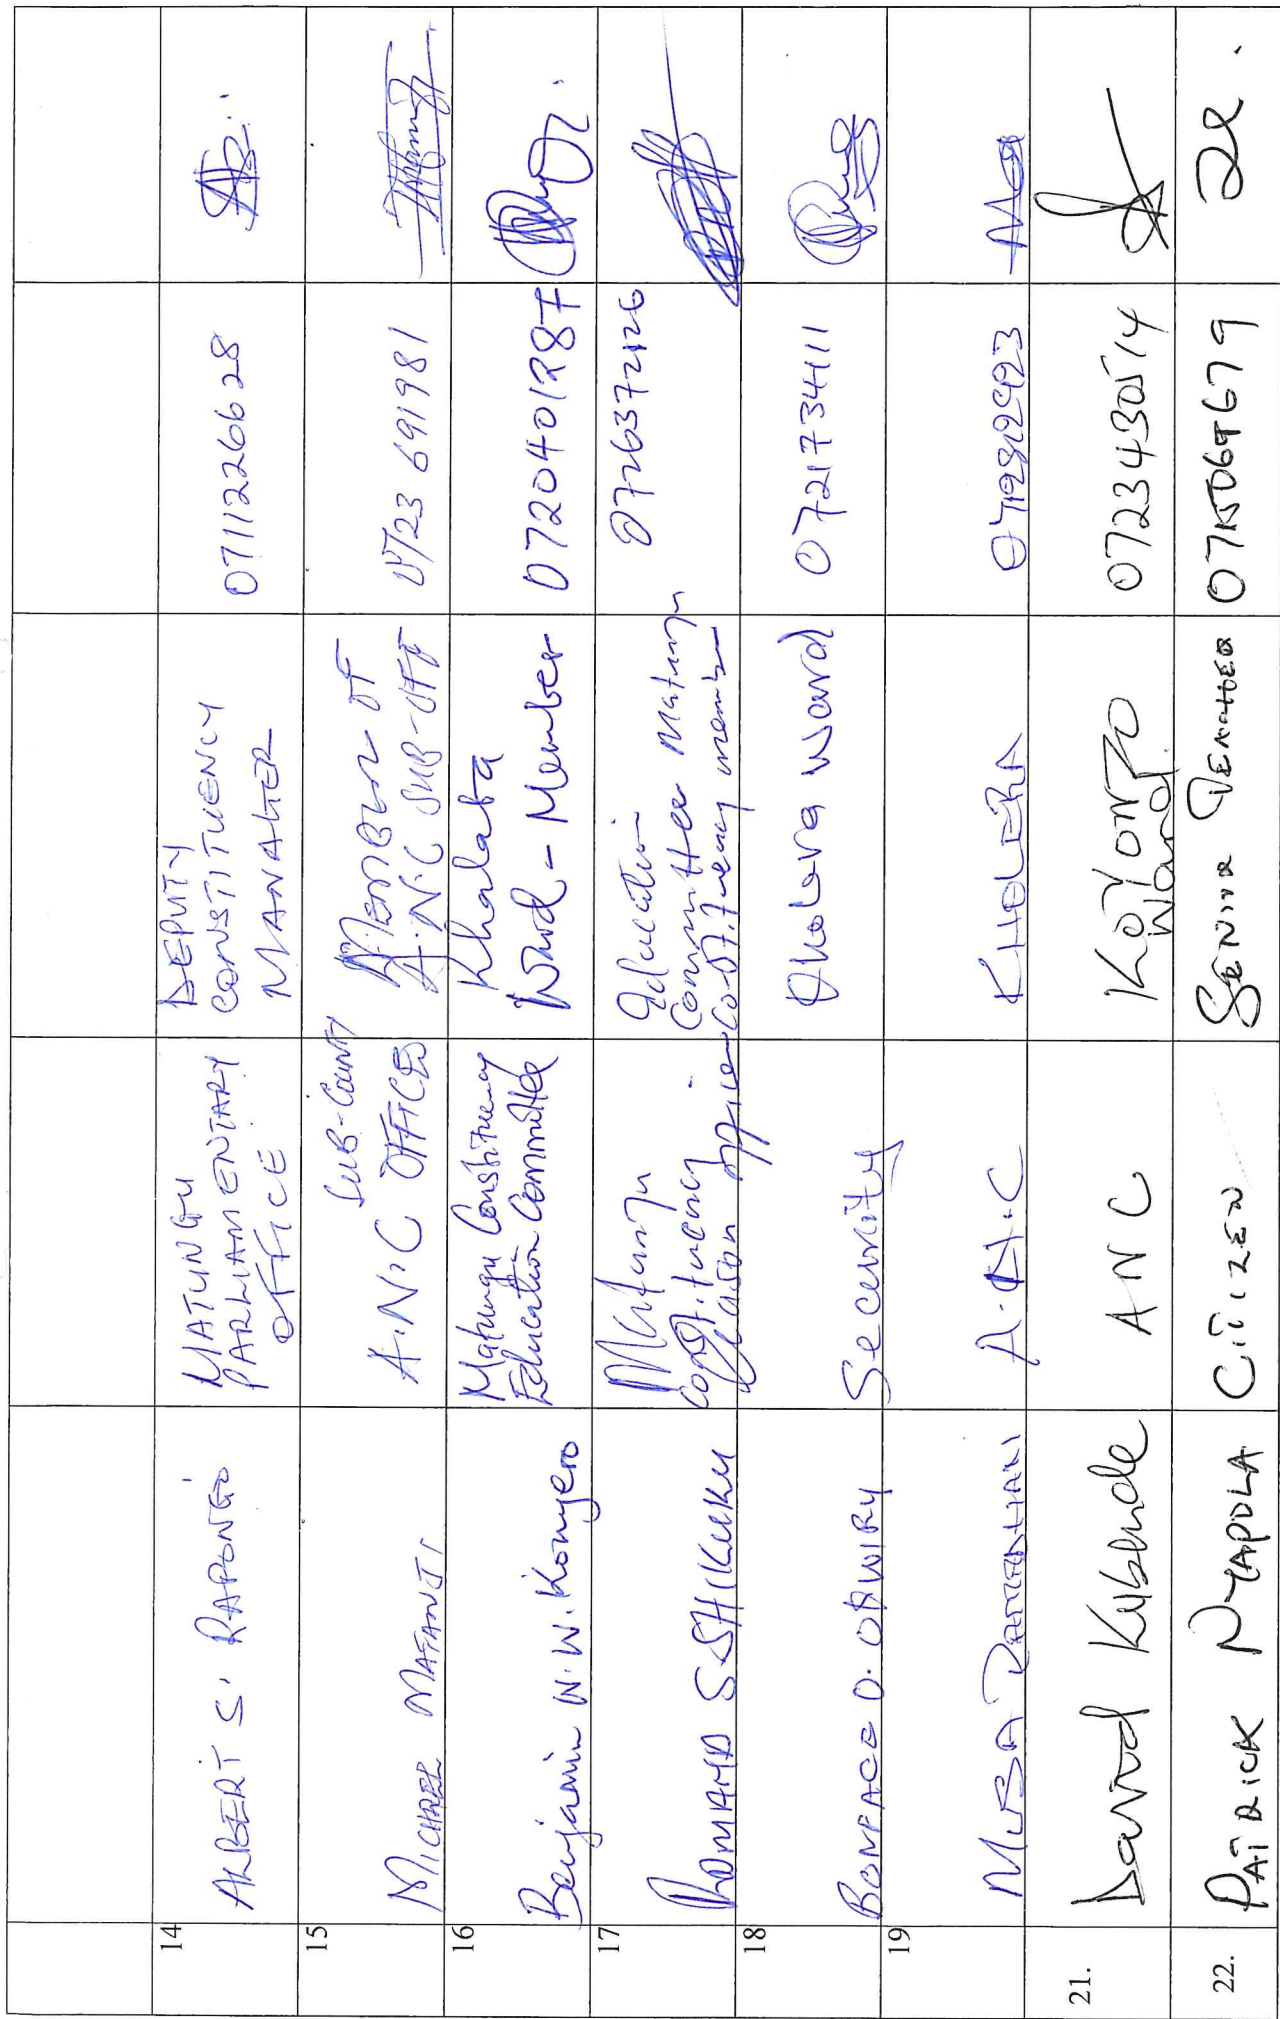 14
ALBERT S. RAPONGO
MATUNGU
PARLIAMENTARY
OFFICE
DEPUTY
CONSTITUENCY
MANAGER
0711226628
15
MICHAEL
A.N.C SUB-COUNTY
OFFICES
MEMBER OF
A.N.C SUB-OFF
0723 691981
16
Benjamin W. W. Konyero
Matungu Constituency
Education Committee
Khalaba
Ward - Member
0720401287
17
S. SHIKUKU
Matungu
Constituency
Liason office
Education
Committee Matungu
Constituency member
0726372126
18
BONFACE O. ODWIRY
Security
Kholera Ward
0721734111
19
MUSA
KHOLERA
21.
David
A N C
KOYONZO
Ward
0723430514
22.
PATRICK NYAPOLA
CITIZEN
SENIOR TEACHER